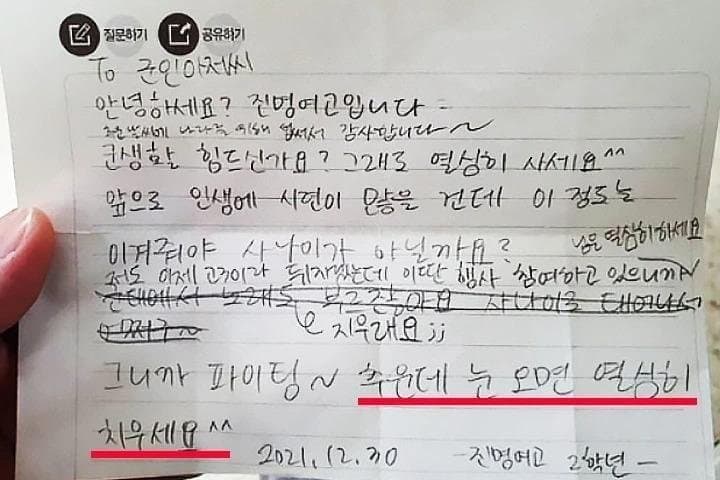 질문하기 공유하기
To 군인아저씨
안녕하세요? 진명여고입니다
추운날씨에 나라를 위해 힘써서 감사합니다~
군생활 힘드신가요? 그래도 열심히 사세요^^
앞으로 인생에 시련이 많을 건데 이 정도는
이겨줘야 사나이가 아닐까요?
눈은 열심히 하세요
저도 이제 고3이라 뒤지겠는데 이딴 행사 참여하고 있으니까~
군대에서 노래도 부르잖아요 사나이로 태어나서
어쩌구~
지우래요;;
그니까 파이팅~ 추운데 눈 오면 열심히
치우세요^^
2021.12.30 -진명여고 2학년-